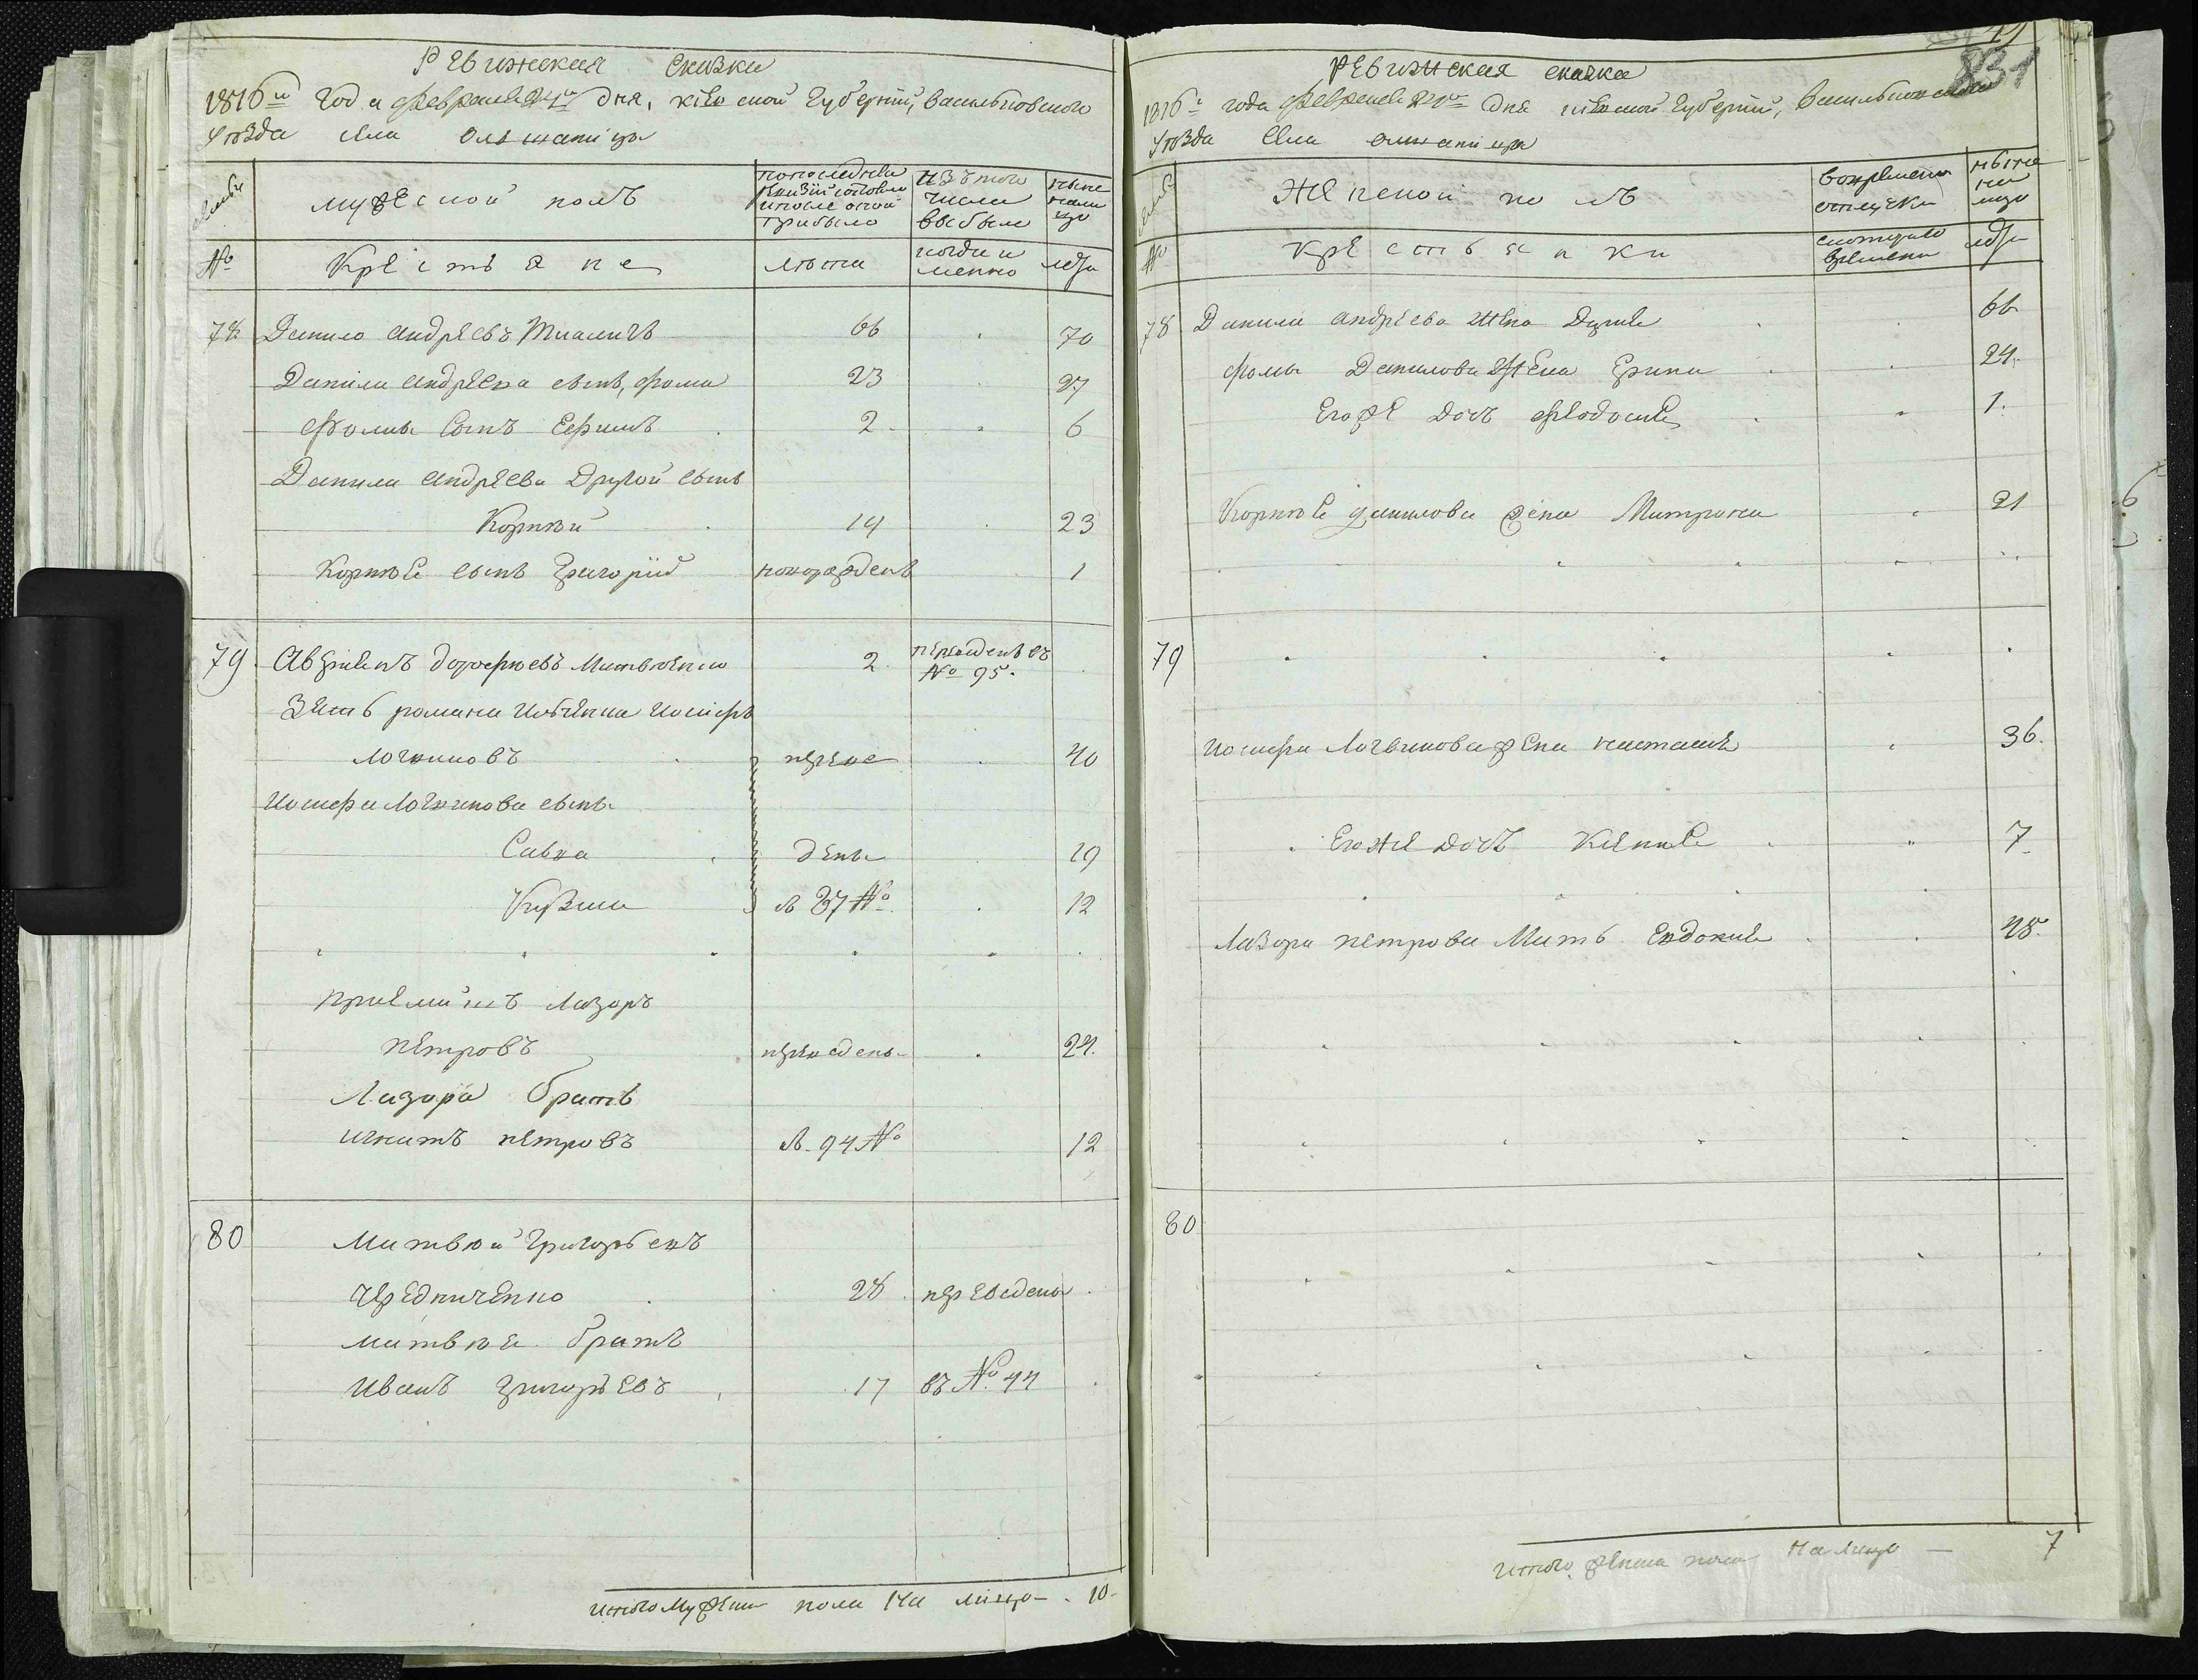 Ревижская Сказка
1816го Года февраля дня, киевской Губернии, васильковского
уѣзда села Ольшаница
мужеской полъ
попоследней ревизии состояло и после оной прибыло
изъ того числа выбыло
ныне на лицо
№ Крестьяне
лѣта
когда именно
лѣта
78 Данило андреевъ 66 70
Данила андреева сынъ, фома 23 27
Фомы Сынъ Ефимъ 2 6
Данила андреева Другой сынъ
Корнѣй 19 23
Корнѣя сынъ Григорий новорожденъ 1
79 Авраамъ дорофеевъ Матвѣенко 2 переведенъ въ № 95.
Зять романа Иосифъ
логвиновъ переве 40
Иосифа Логвинова сыны
Савка дены 19
Кузма съ 37 № 12
приемышъ Лазоръ
петровъ переведены 24.
Лазора братъ
игнатъ петровъ съ 94 № 12
80 Матвѣй Григорьевъ
Чередниченко 28 переведены
матвѣя братъ
Иванъ григорьевъ 17 въ № 44
итого мужеска пола на лицо 10
831
Ревижская сказка
1816го года февраля дня киевской Губернии, Васильковского
уѣзда села олшаница
Женской полъ
во временной отлучке
ныне на лицо
№ Крестьянки
с которого времени
лѣта
78 Данила андреева жена 66
фомы Данилова Жена Ирина 24.
Его же дочь феодосия 1.
Корнѣя данилова жена Матрона 21
79
иосифа Логвинова жена настасия 36.
Его же дочь Ксения 7
Лазора петрова Мать Евдокия 48.
80
итого женска пола на лицо — 7